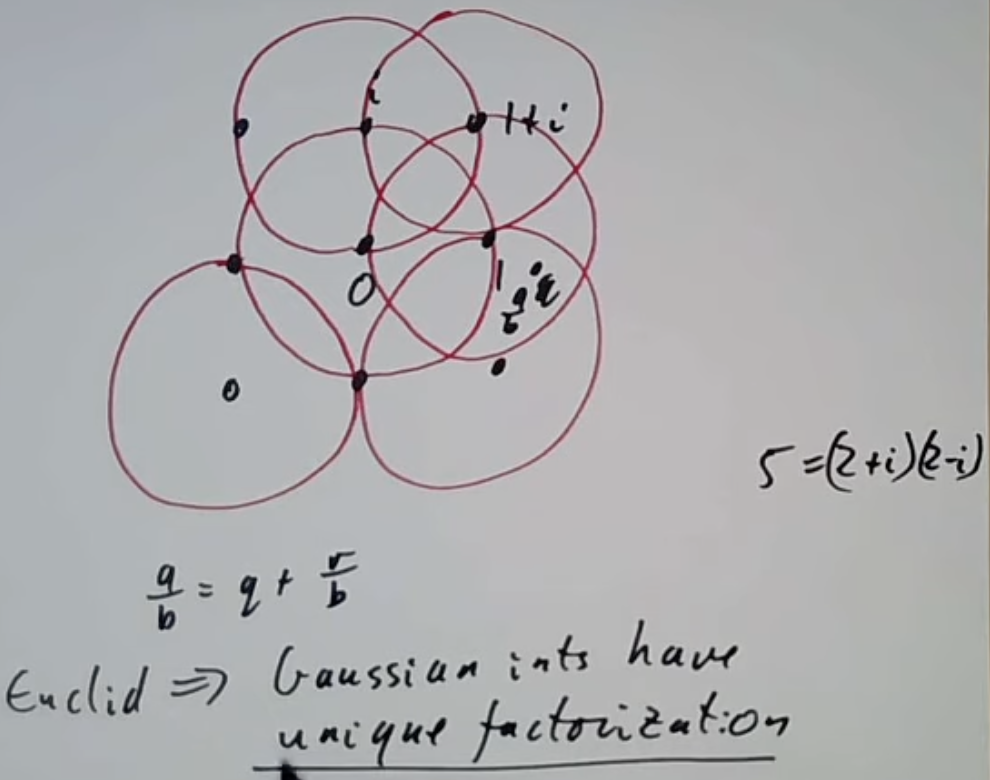 i
1+i
0
1
a/b
5=(2+i)(2-i)
a/b = q + r/b
Euclid ⇒ Gaussian ints have
unique factorization